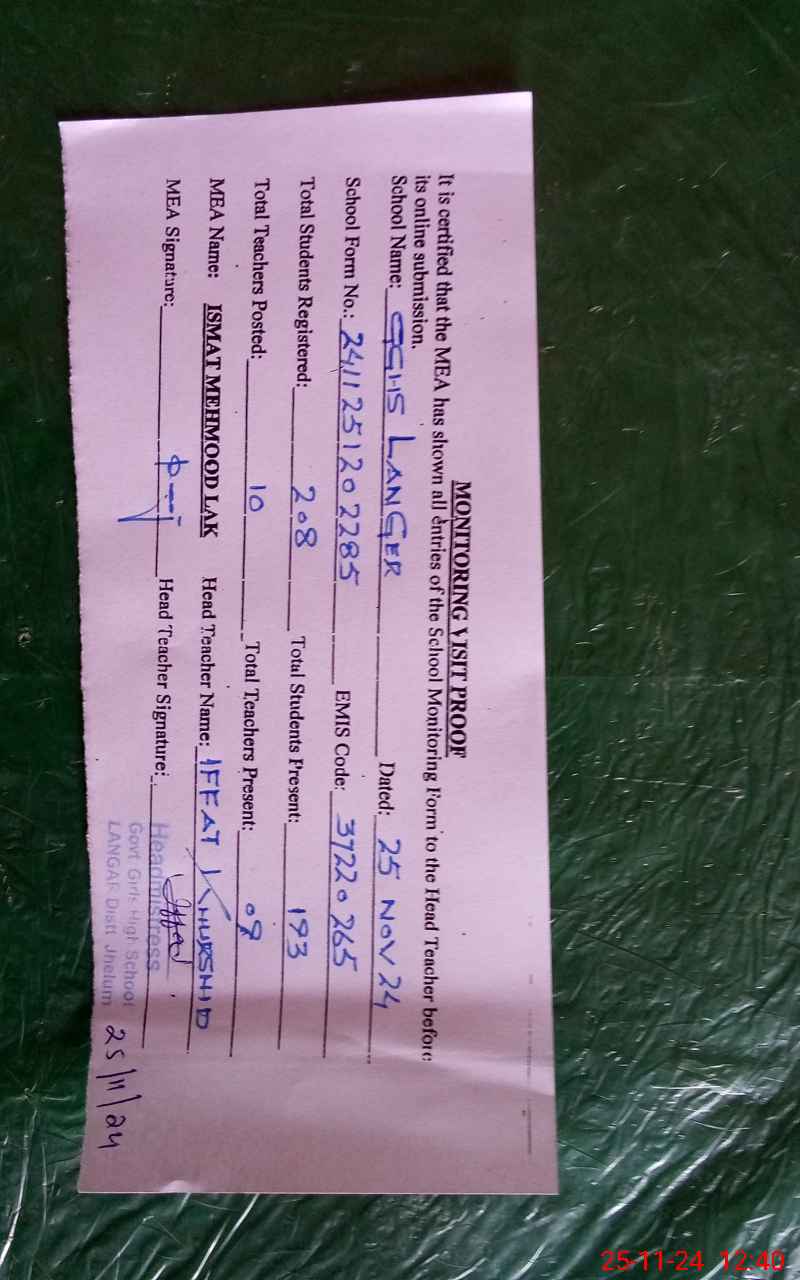 MONITORING VISIT PROOF
It is certified that the MEA has shown all entries of the School Monitoring Form to the Head Teacher before
its online submission.
School Name: GGHS LANGER Dated: 25 NOV 24
School Form No.: 241125120 2285 EMIS Code: 37220265
Total Students Registered: 208 Total Students Present: 193
Total Teachers Posted: 10 Total Teachers Present: 09
MEA Name: ISMAT MEHMOOD LAK Head Teacher Name: IFFAT KHURSHID
MEA Signature: Head Teacher Signature:
Headmistress
Govt Girls High School
LANGAR Distt Jhelum 25/11/24
25-11-24 12:40